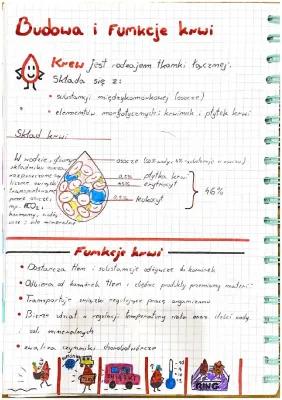 Budowa i Funkcje krwi
Krew jest rodzajem tkanki łącznej.
Składa się z:
• substancji międzykomórkowej (osocze)
• elementów morfotycznych: krwinek i płytek krwi
Skład krwi
W wodzie, głównym
składniku osocza
rozpuszczone są
liczne związki
transportowane
przez osocze;
np.
hormony,
sole mineralne
osocze
płytka krwi
45% erytrocyt
leukocyt
46%
Funkcje krwi
• Dostarcza tlen i substancje odżywcze do komórek
• Odbiera od komórek tlen i zbędne produkty przemiany materii
• Transportuje związki regulujące pracę organizmu
• Bierze udział w regulacji temperatury ciała oraz ilości wody
i soli mineralnych
• zwalcza czynniki chorobotwórcze
RING